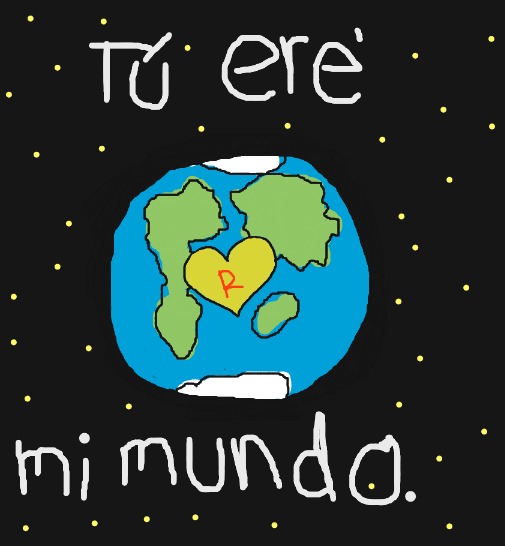 Tú ere'
R
mi mundo.